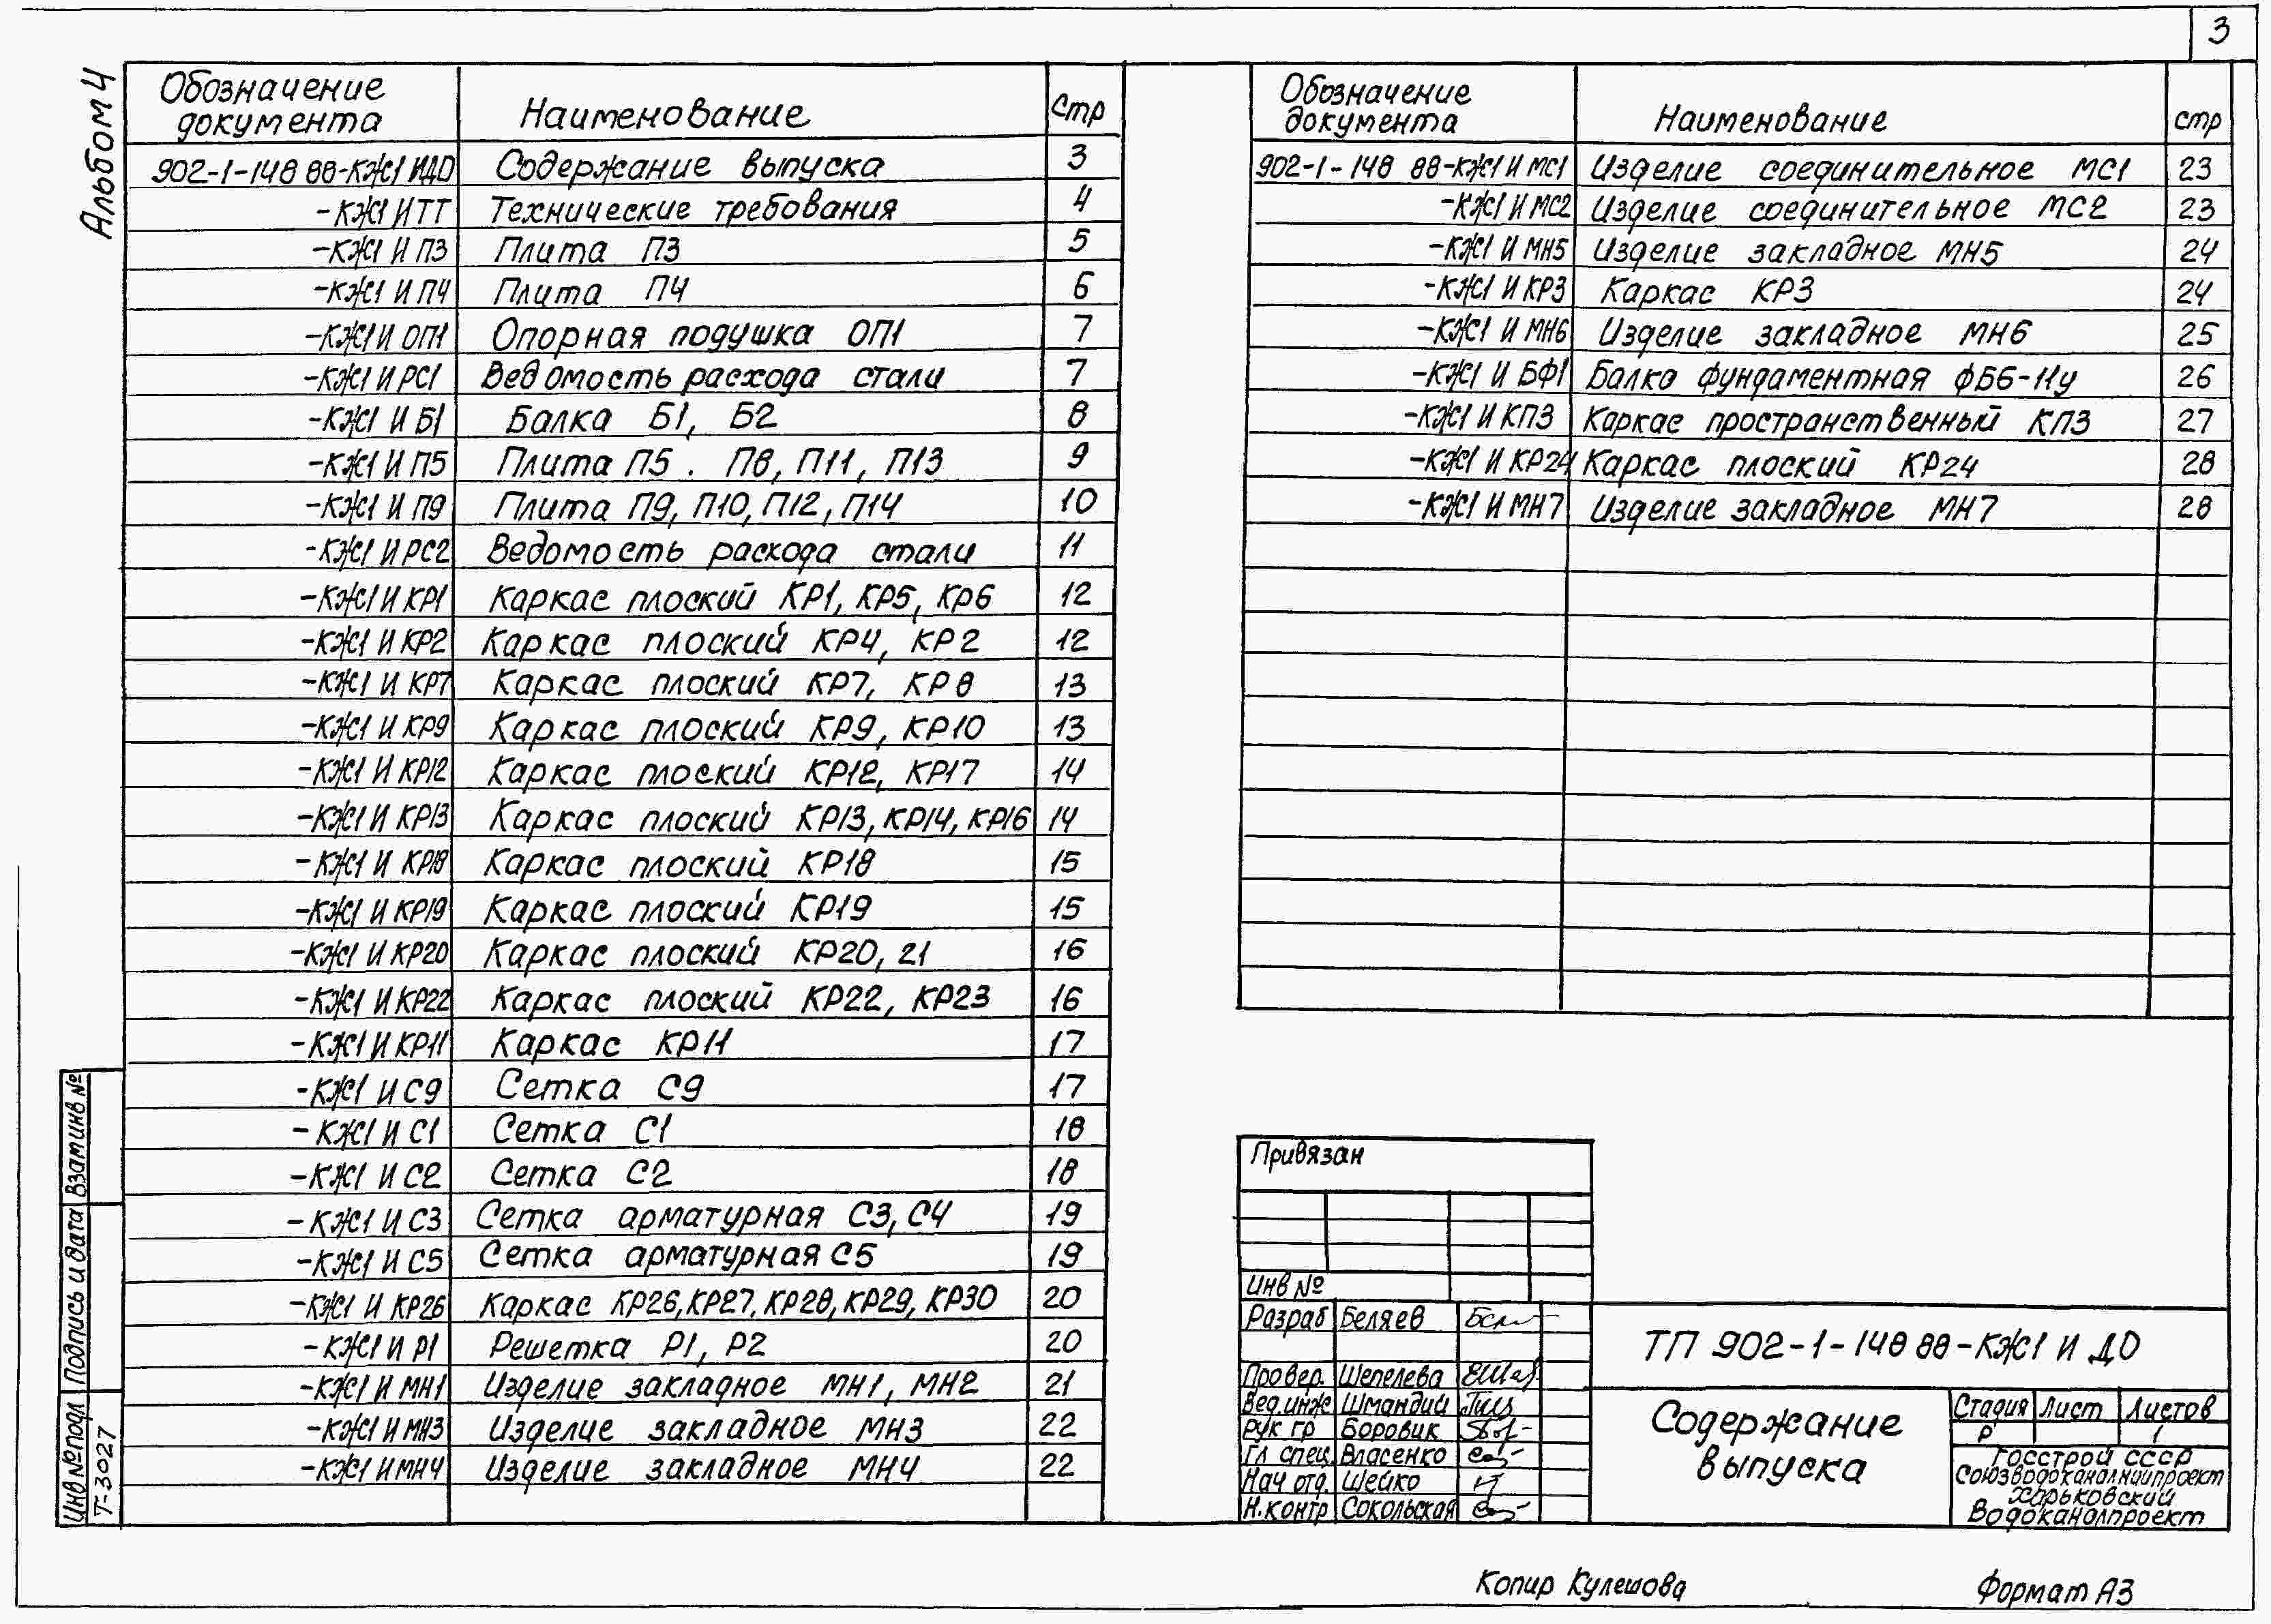 3
Альбом 4
Обозначение документа Наименование Стр
902-1-148 88-КЖ1 И ДО Содержание выпуска 3
-КЖ1 И ТТ Технические требования 4
-КЖ1 И П3 Плита П3 5
-КЖ1 И П4 Плита П4 6
-КЖ1 И ОП1 Опорная подушка ОП1 7
-КЖ1 И РС1 Ведомость расхода стали 7
-КЖ1 И Б1 Балка Б1, Б2 8
-КЖ1 И П5 Плита П5 . П8, П11, П13 9
-КЖ1 И П9 Плита П9, П10, П12, П14 10
-КЖ1 И РС2 Ведомость расхода стали 11
-КЖ1 И КР1 Каркас плоский КР1, КР5, КР6 12
-КЖ1 И КР2 Каркас плоский КР4, КР2 12
-КЖ1 И КР7 Каркас плоский КР7, КР8 13
-КЖ1 И КР9 Каркас плоский КР9, КР10 13
-КЖ1 И КР12 Каркас плоский КР12, КР17 14
-КЖ1 И КР13 Каркас плоский КР13, КР14, КР16 14
-КЖ1 И КР18 Каркас плоский КР18 15
-КЖ1 И КР19 Каркас плоский КР19 15
-КЖ1 И КР20 Каркас плоский КР20, 21 16
-КЖ1 И КР22 Каркас плоский КР22, КР23 16
-КЖ1 И КР11 Каркас КР11 17
-КЖ1 И С9 Сетка С9 17
-КЖ1 И С1 Сетка С1 18
-КЖ1 И С2 Сетка С2 18
-КЖ1 И С3 Сетка арматурная С3, С4 19
-КЖ1 И С5 Сетка арматурная С5 19
-КЖ1 И КР26 Каркас КР26, КР27, КР28, КР29, КР30 20
-КЖ1 И Р1 Решетка Р1, Р2 20
-КЖ1 И МН1 Изделие закладное МН1, МН2 21
-КЖ1 И МН3 Изделие закладное МН3 22
-КЖ1 И МН4 Изделие закладное МН4 22
Обозначение документа Наименование стр
902-1-148 88-КЖ1 И МС1 Изделие соединительное МС1 23
-КЖ1 И МС2 Изделие соединительное МС2 23
-КЖ1 И МН5 Изделие закладное МН5 24
-КЖ1 И КР3 Каркас КР3 24
-КЖ1 И МН6 Изделие закладное МН6 25
-КЖ1 И БФ1 Балка фундаментная ФБ6-11у 26
-КЖ1 И КП3 Каркас пространственный КП3 27
-КЖ1 И КР24 Каркас плоский КР24 28
-КЖ1 И МН7 Изделие закладное МН7 28
Взам инв №
Подпись и дата
Инв № подл
Т-3027
Привязан
Инв №
Разраб Беляев
Провер. Шепелева
Вед.инж Шмандий
Рук гр Боровик
Гл спец. Власенко
Нач отд. Шейко
Н.контр Сокольская
ТП 902-1-148 88-КЖ1 И ДО
Содержание
выпуска
Стадия Лист Листов
Р 1
Госстрой СССР
Союзводоканалниипроект
Харьковский
Водоканалпроект
Копир Кулешова
Формат А3